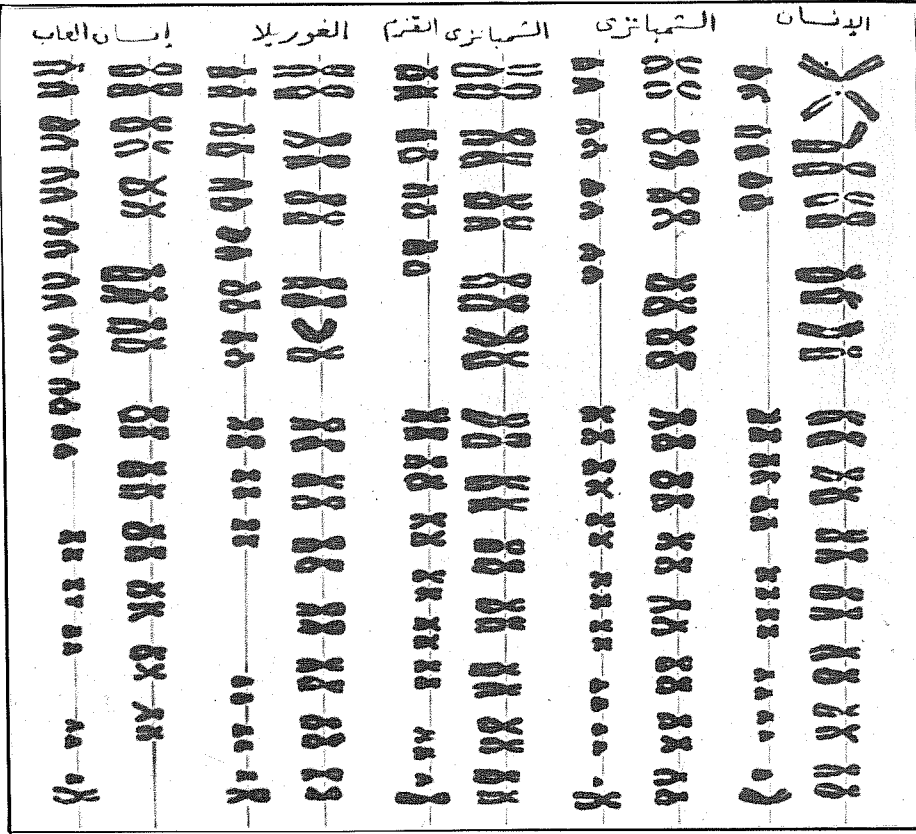 الإنسان
الشمبانزى
الشمبانزى القزم
الغوريلا
إنسان الغاب